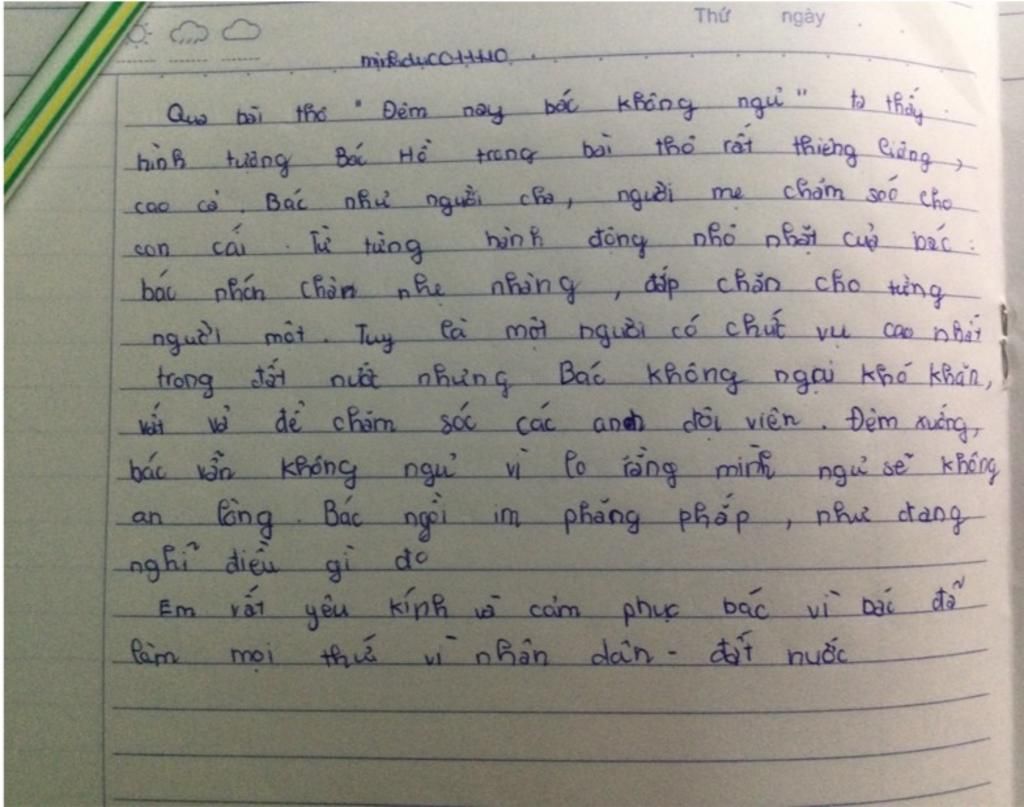 Thứ ngày
minhduc04410
Qua bài thơ " Đêm nay bác không ngủ " ta thấy
hình tượng Bác Hồ trong bài thơ rất thiêng liêng,
cao cả. Bác như người cha, người mẹ chăm soó cho
con cái. Từ từng hành động nhỏ nhặt của bác:
bác nhón chân nhẹ nhàng, đắp chăn cho từng
người một. Tuy là một người có chức vụ cao nhất
trong đất nước nhưng Bác không ngại khó khăn,
vất vả để chăm sóc các anh đội viên. Đêm xuống,
bác vẫn không ngủ vì lo rằng mình ngủ sẽ không
an lòng. Bác ngồi im phăng phắp, như đang
nghĩ điều gì đo
Em rất yêu kính và cảm phục bác vì bác đã
làm mọi thứ vì nhân dân - đất nước